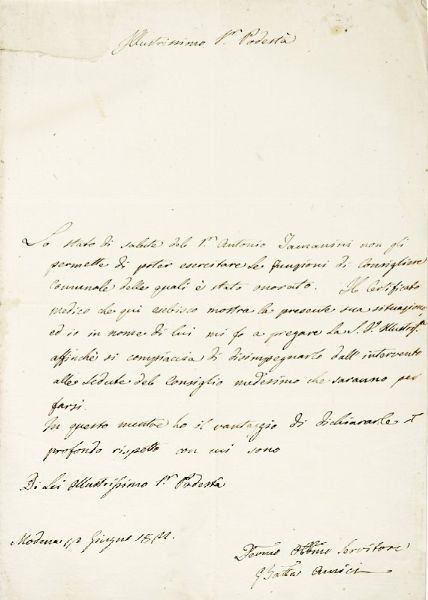 Illustrissimo Sr. Podestà
Lo stato di salute del Sr. Antonio non gli
permette di poter esercitare le funzioni di Consigliere
comunale delle quali è stato onorato. Il Certificato
medico che qui esibisco mostra la presente sua situazione,
ed io in nome di lui mi fo a pregare la S. V. Illustr.
affinchè si compiaccia di disimpegnarlo dall'intervento
alle sedute del Consiglio medesimo che saranno per
farsi.
In questo mentre ho il vantaggio di dichiararle il
profondo rispetto con cui sono
Di Lei Illustrissimo Sr. Podestà
Modena Giugno
Devmo Obbmo Servitore